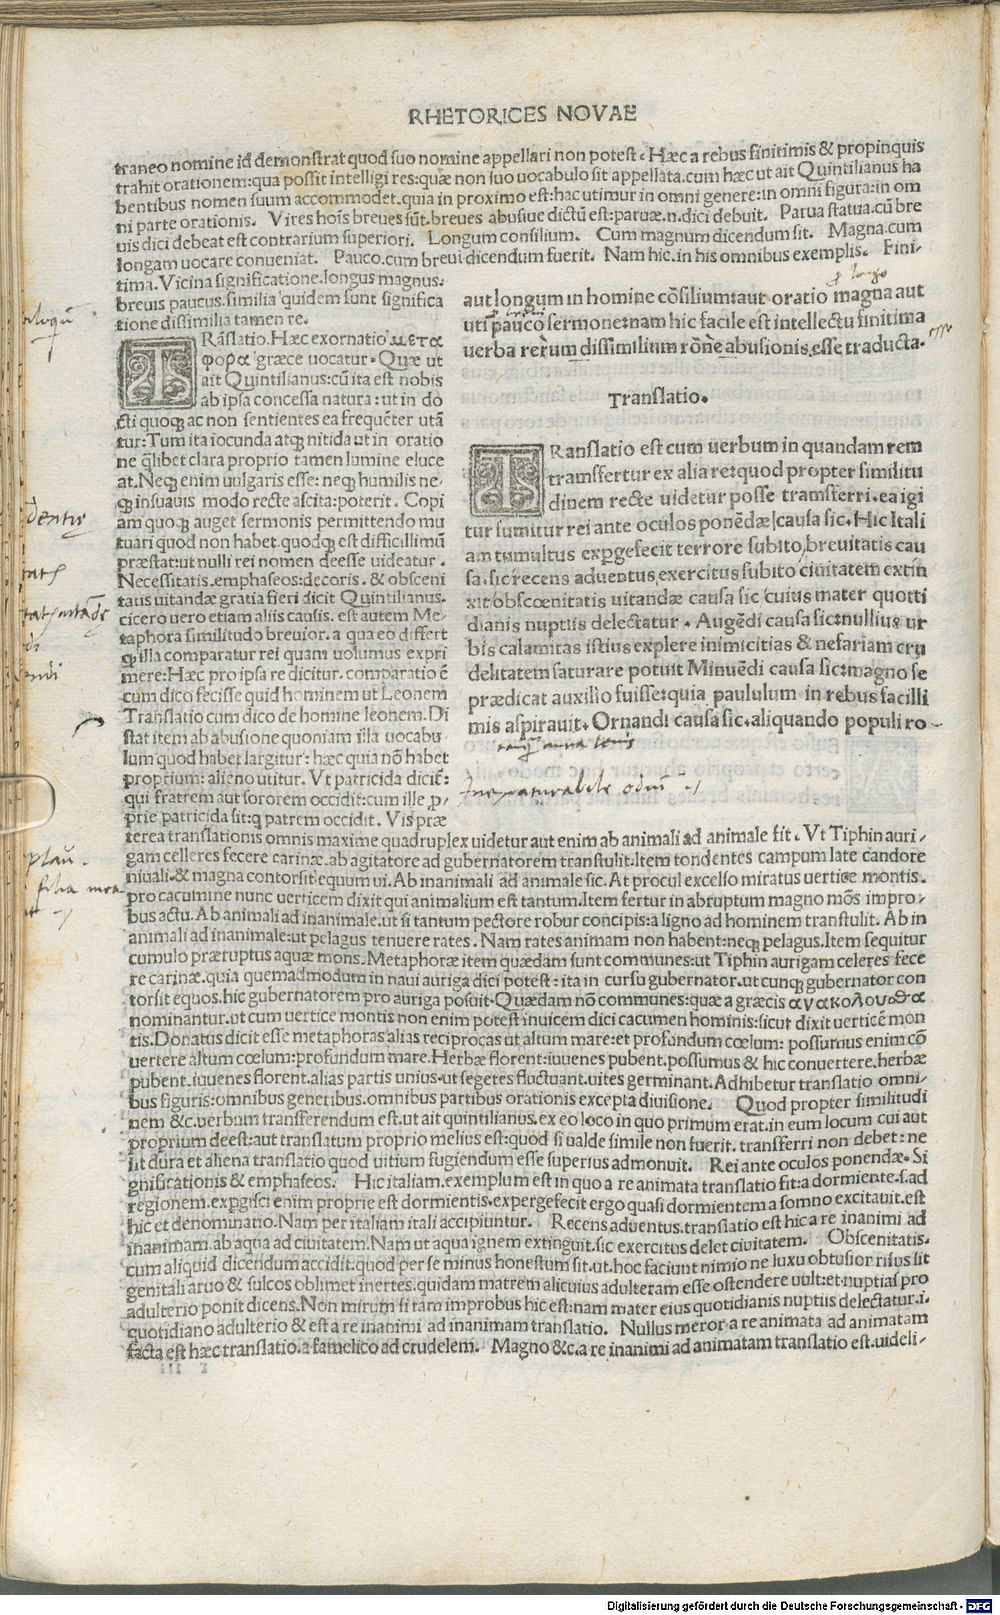 RHETORICES NOVAE
traneo nomine id demonstrat quod suo nomine appellari non potest. Hæc a rebus finitimis & propinquis
trahit orationem: qua possit intelligi res: quæ non suo uocabulo sit appellata. cum hæc ut ait Quintilianus ha
bentibus nomen suum accommodet. quia in proximo est: hac utimur in omni genere: in omni figura: in om
ni parte orationis. Vires hoīs breues sūt. breues abusiue dictū est: paruæ .n. dici debuit. Parua statua. cū bre
uis dici debeat est contrarium superiori. Longum consilium. Cum magnum dicendum sit. Magna. cum
longam uocare conueniat. Pauco. cum breui dicendum fuerit. Nam hic. in his omnibus exemplis. Fini-
tima. Vicina significatione. longus magnus.
breuis paucus. similia quidem sunt significa
tione dissimilia tamen re.
TRāslatio. Hæc exornatio μετα
φορα græce uocatur. Quæ ut
ait Quintilianus: cū ita est nobis
ab ipsa concessa natura: ut in do
cti quoqꝫ ac non sentientes ea frequēter utā
tur: Tum ita iocunda atqꝫ nitida ut in oratio
ne q̄libet clara proprio tamen lumine eluce
at. Neqꝫ enim uulgaris esse: neqꝫ humilis ne-
qꝫ insuauis modo recte ascita: poterit. Copi
am quoqꝫ auget sermonis permittendo mu
tuari quod non habet. quodqꝫ est difficillimū
præstat: ut nulli rei nomen deesse uideatur.
Necessitatis. emphaseos: decoris. & obsceni
tatis uitandæ gratia fieri dicit Quintilianus.
cicero uero etiam aliis causis. est autem Me-
taphora similitudo breuior. a qua eo differt
qꝫ illa comparatur rei quam uolumus expri
mere: Hæc pro ipsa re dicitur. comparatio ē
cum dico fecisse quid hominem ut Leonem
Translatio cum dico de homine leonem. Di
stat item ab abusione quoniam illa uocabu-
lum quod habet largitur: hæc quia nō habet
proprium: alieno utitur. Vt patricida dicit̄:
qui fratrem aut sororem occidit: cum ille ꝓ-
prie patricida sit: q patrem occidit. Vis præ
aut longum in homine cōsilium: aut oratio magna aut
uti pauco sermone: nam hic facile est intellectu finitima
uerba rerum dissimilium rōne abusionis esse traducta.
Translatio.
TRanslatio est cum uerbum in quandam rem
tramsfertur ex alia re: quod propter similitu
dinem recte uidetur posse tramsferri. ea igi
tur sumitur rei ante oculos ponēdæ causa sic. Hic Itali
am tumultus expgefecit terrore subito, breuitatis cau
sa. sic recens aduentus exercitus subito ciuitatem extin
xit obscœnitatis uitandæ causa sic cuius mater quotti
dianis nuptiis delectatur. Augēdi causa sic: nullius ur
bis calamitas istius explere inimicitias & nefariam cru
delitatem saturare potuit Minuēdi causa sic: magno se
prædicat auxilio fuisse: quia paululum in rebus facilli
mis aspirauit. Ornandi causa sic. aliquando populi ro-
terea translationis omnis maxime quadruplex uidetur aut enim ab animali ad animale fit. Vt Tiphin auri-
gam celleres fecere carinæ. ab agitatore ad gubernatorem transtulit. Item tondentes campum late candore
niuali. & magna contorsit equum ui. Ab inanimali ad animale sic. At procul excelso miratus uertice montis.
pro cacumine nunc uerticem dixit qui animalium est tantum. Item fertur in abruptum magno mōs impro-
bus actu. Ab animali ad inanimale. ut si tantum pectore robur concipis: a ligno ad hominem transtulit. Ab in
animali ad inanimale: ut pelagus tenuere rates. Nam rates animam non habent: neqꝫ pelagus. Item sequitur
cumulo præruptus aquæ mons. Metaphoræ item quædam sunt communes: ut Tiphin aurigam celeres fece
re carinæ. quia quemadmodum in naui auriga dici potest: ita in cursu gubernator. ut cunqꝫ gubernator con
torsit equos. hic gubernatorem pro auriga posuit. Quædam nō communes: quæ a græcis ανακολουθα
nominantur. ut cum uertice montis non enim potest inuicem dici cacumen hominis: sicut dixit uerticē mon
tis. Donatus dicit esse metaphoras alias reciprocas ut altum mare: et profundum cœlum: possumus enim cō
uertere altum cœlum: profundum mare. Herbæ florent: iuuenes pubent. possumus & hic conuertere. herbæ
pubent. iuuenes florent. alias partis unius. ut segetes fluctuant. uites germinant. Adhibetur translatio omni-
bus figuris: omnibus generibus. omnibus partibus orationis excepta diuisione. Quod propter similitudi
nem &c. uerbum transferendum est. ut ait quintilianus. ex eo loco in quo primum erat. in eum locum cui aut
proprium deest: aut translatum proprio melius est: quod si ualde simile non fuerit. transferri non debet: ne
sit dura et aliena translatio quod uitium fugiendum esse superius admonuit. Rei ante oculos ponendæ. Si
gnificationis & emphaseos. Hic italiam. exemplum est in quo a re animata translatio fit: a dormiente .s. ad
regionem. expgisci enim proprie est dormientis. expergefecit ergo quasi dormientem a somno excitauit. est
hic et denominatio. Nam per italiam itali accipiuntur. Recens aduentus. translatio est hic a re inanimi ad
inanimam. ab aqua ad ciuitatem. Nam ut aqua ignem extinguit. sic exercitus delet ciuitatem. Obscenitatis.
cum aliquid dicendum accidit: quod per se minus honestum sit. ut. hoc faciunt nimio ne luxu obtusior risus sit
genitali aruo & sulcos oblimet inertes. quidam matrem alicuius adulteram esse ostendere uult: et nuptias pro
adulterio ponit dicens. Non mirum si tam improbus hic est: nam mater eius quotidianis nuptiis delectatur .i.
quotidiano adulterio & est a re inanimi ad inanimam translatio. Nullus meror a re animata ad animatam
facta est hæc translatio. a famelico ad crudelem. Magno &c. a re inanimi ad animatam translatio est. uideli-
Digitalisierung gefördert durch die Deutsche Forschungsgemeinschaft - DFG